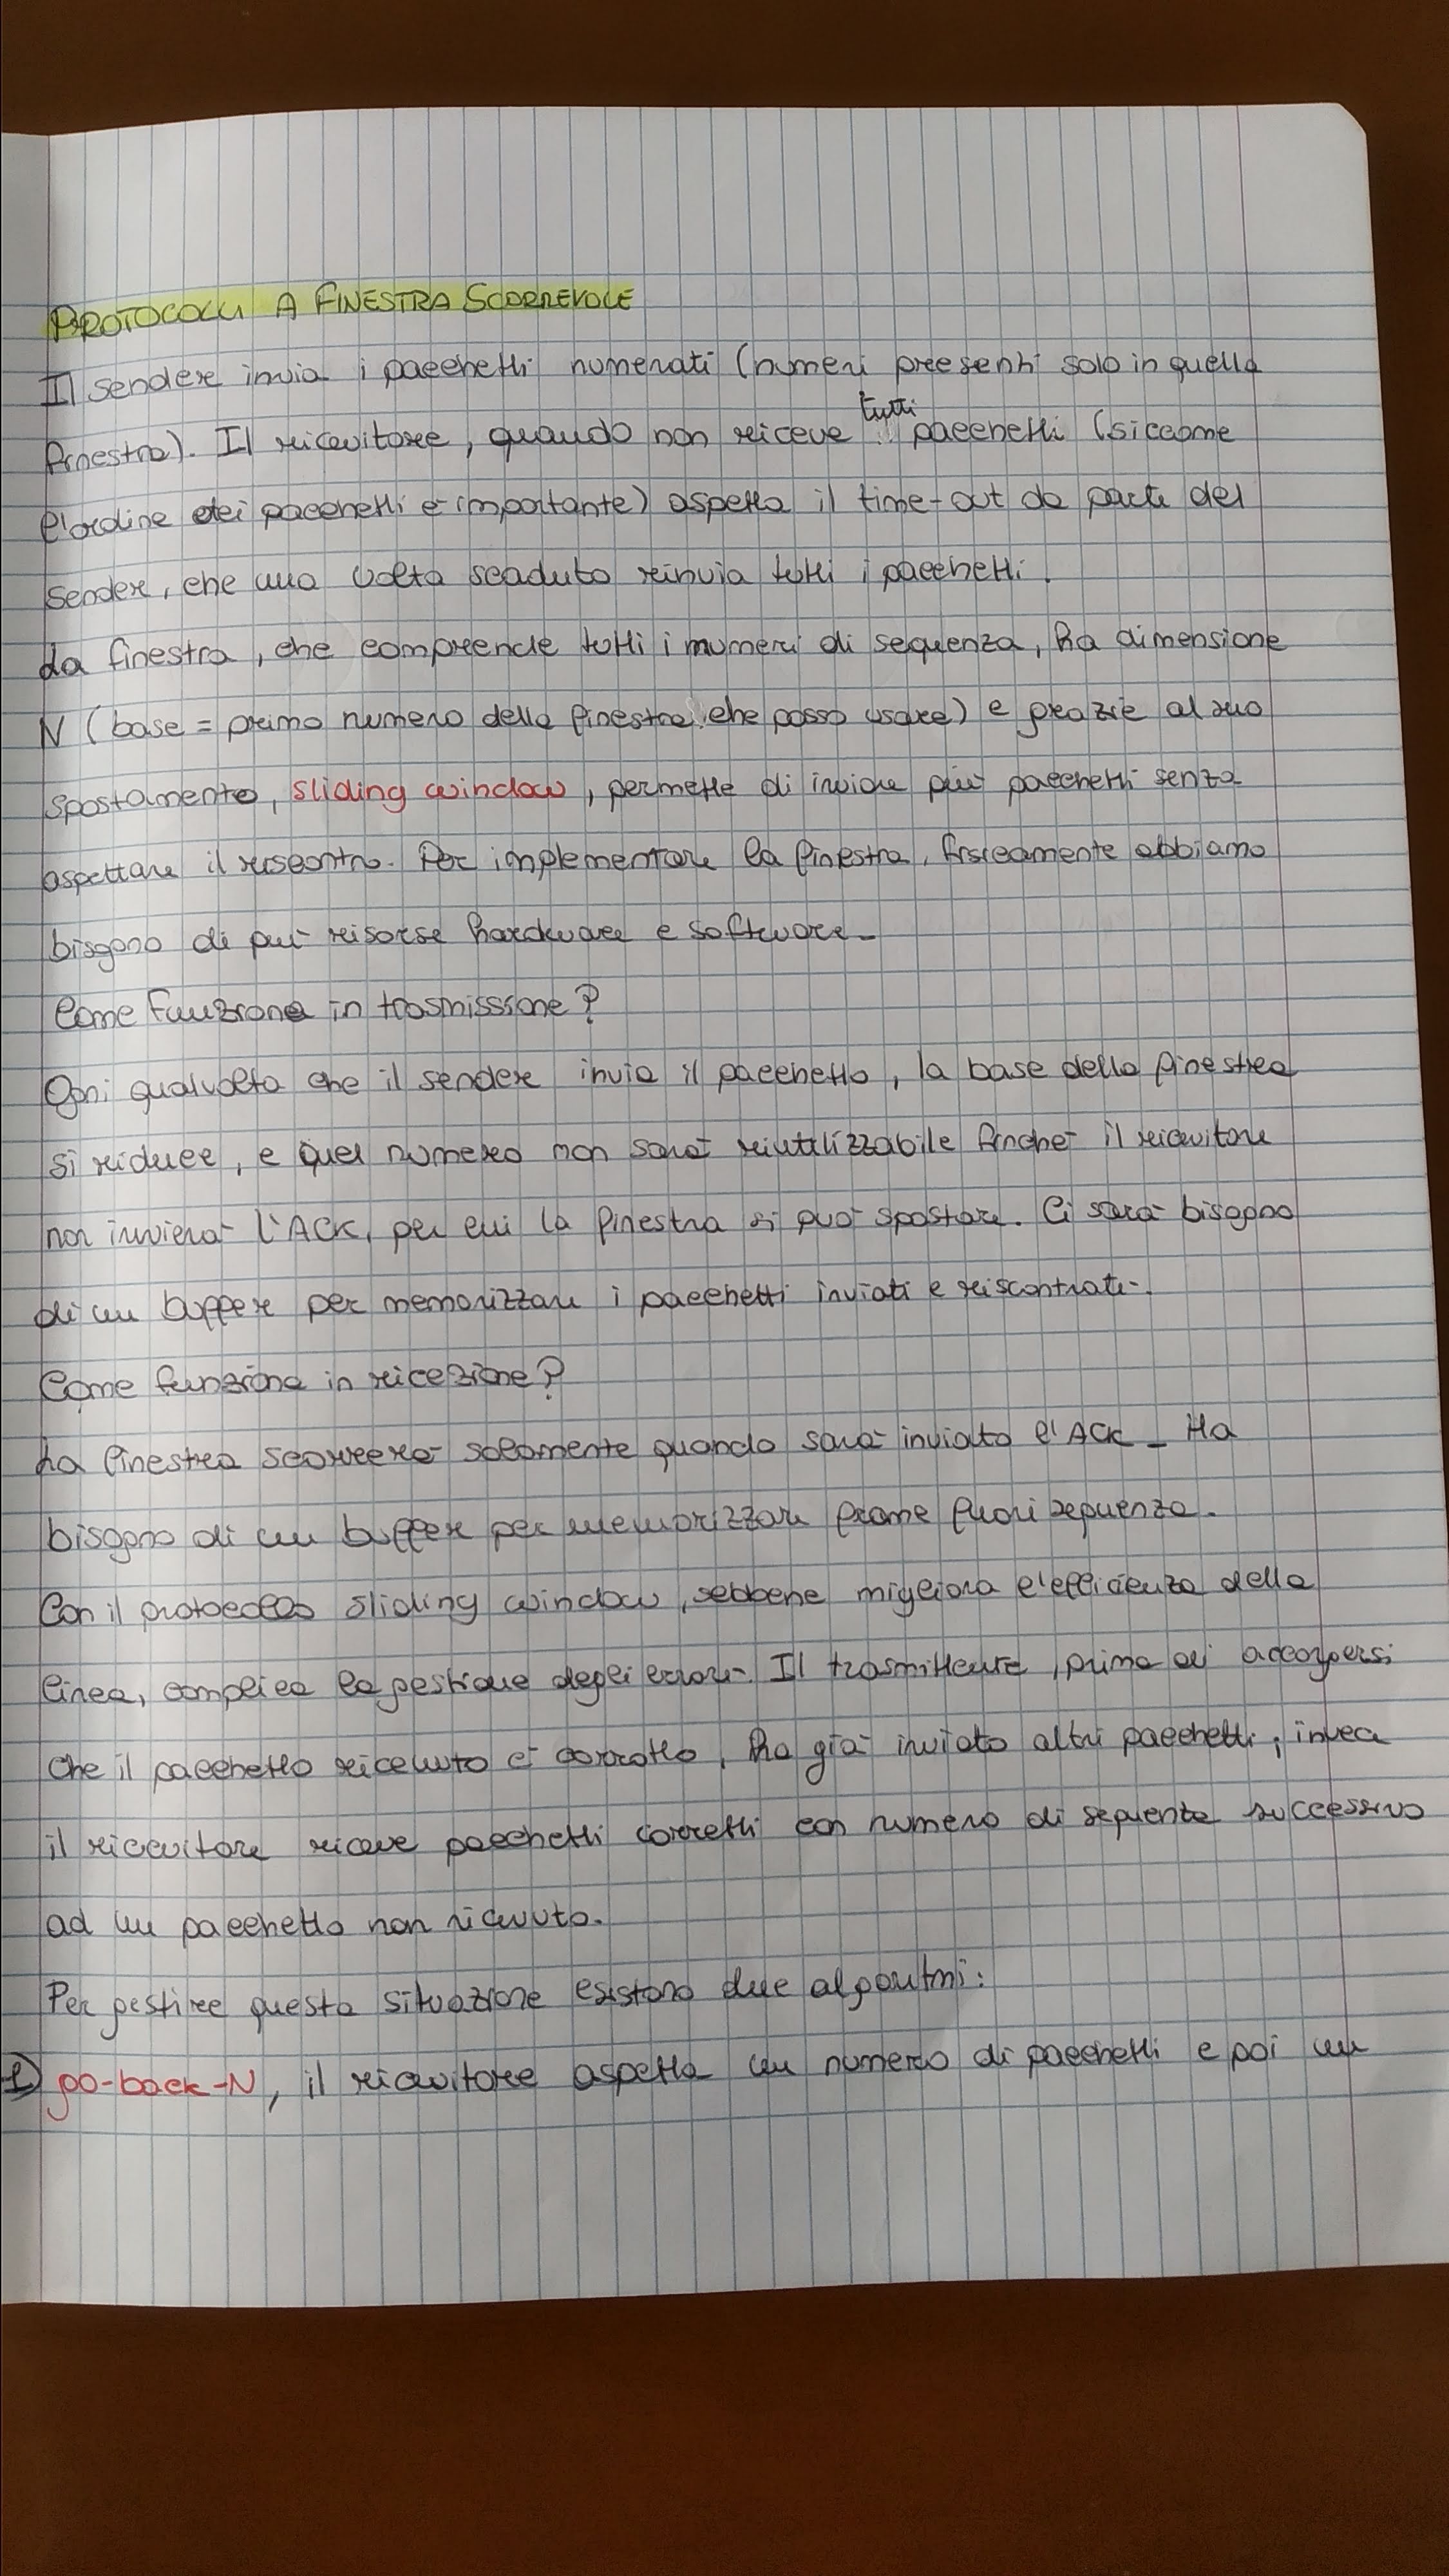 PROTOCOLLI A FINESTRA SCORREVOLE
Il sender invia i pacchetti numerati (numeri presenti solo in quella
finestra). Il ricevitore, quando non riceve tutti i pacchetti (siccome
l'ordine dei pacchetti è importante) aspetta il time-out da parte del
sender, che una volta scaduto reinvia tutti i pacchetti.
La finestra, che comprende tutti i numeri di sequenza, ha dimensione
N (base = primo numero della finestra che posso usare) e grazie al suo
spostamento, sliding window, permette di inviare più pacchetti senza
aspettare il riscontro. Per implementare la finestra, fisicamente abbiamo
bisogno di più risorse hardware e software.
Come funziona in trasmissione?
Ogni qualvolta che il sender invia il pacchetto, la base della finestra
si riduce, e quel numero non sarà riutilizzabile finché il ricevitore
non invierà l'ACK, per cui la finestra si può spostare. Ci sarà bisogno
di un buffer per memorizzare i pacchetti inviati e riscontrati.
Come funziona in ricezione?
La finestra scorrerà solamente quando sarà inviato l'ACK. Ha
bisogno di un buffer per memorizzare frame fuori sequenza.
Con il protocollo sliding window, sebbene migliora l'efficienza della
linea, complica la gestione degli errori. Il trasmittente, prima di accorgersi
che il pacchetto ricevuto è corrotto, ha già inviato altri pacchetti, invece
il ricevitore riceve pacchetti corretti con numero di sequenza successivo
ad un pacchetto non ricevuto.
Per gestire questa situazione esistono due algoritmi:
1) go-back-N, il ricevitore aspetta un numero di pacchetti e poi un